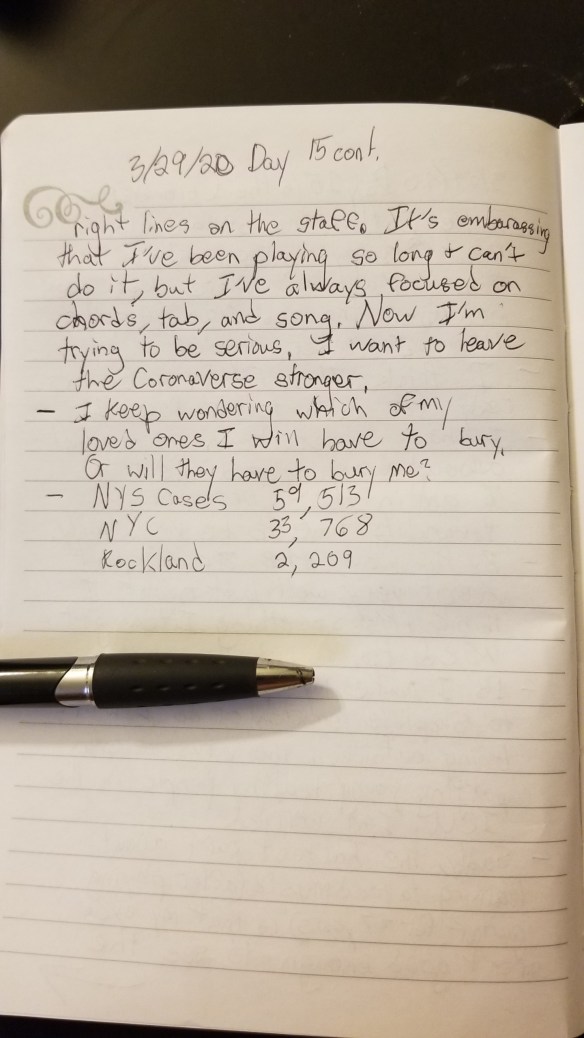 3/29/20 Day 15 cont.
right lines on the staff. It's embarassing
that I've been playing so long & can't
do it, but I've always focused on
chords, tab, and song. Now I'm
trying to be serious, I want to leave
the Coronaverse stronger.
- I keep wondering which of my
loved ones I will have to bury.
Or will they have to bury me?
- NYS Cases 59,513
NYC 33,768
Rockland 2,209